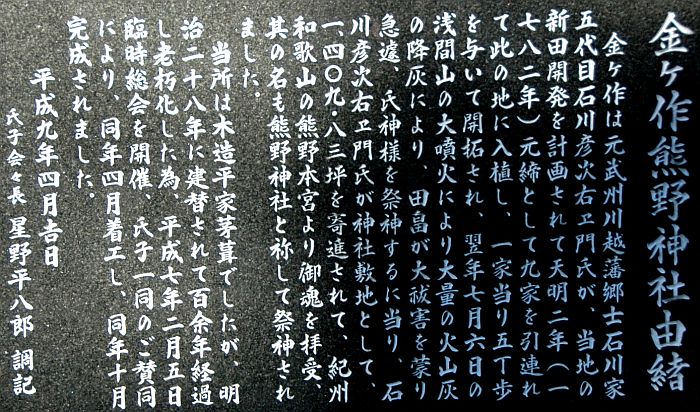 金ヶ作熊野神社由緒
金ヶ作は元武州川越藩郷士石川家
五代目石川彦次右ヱ門氏が、当地の
新田開発を計画されて天明二年（一
七八二年）元締として九家を引連れ
て此の地に入植し、一家当り五丁歩
を与いて開拓され、翌年七月六日の
浅間山の大噴火により大量の火山灰
の降灰により、田畠が大被害を蒙り
急遽、氏神様を祭神するに当り、石
川彦次右ヱ門氏が神社敷地として、
一、四〇九・八三坪を寄進されて、紀州
和歌山の熊野本宮より御魂を拝受、
其の名も熊野神社と称して祭神され
ました。
当所は木造平家茅葺でしたが、明
治二十八年に建替されて百余年経過
し老朽化した為、平成七年二月五日
臨時総会を開催、氏子一同のご賛同
により、同年四月着工し、同年十月
完成されました。
平成九年四月吉日
氏子会々長 星野平八郎 調記